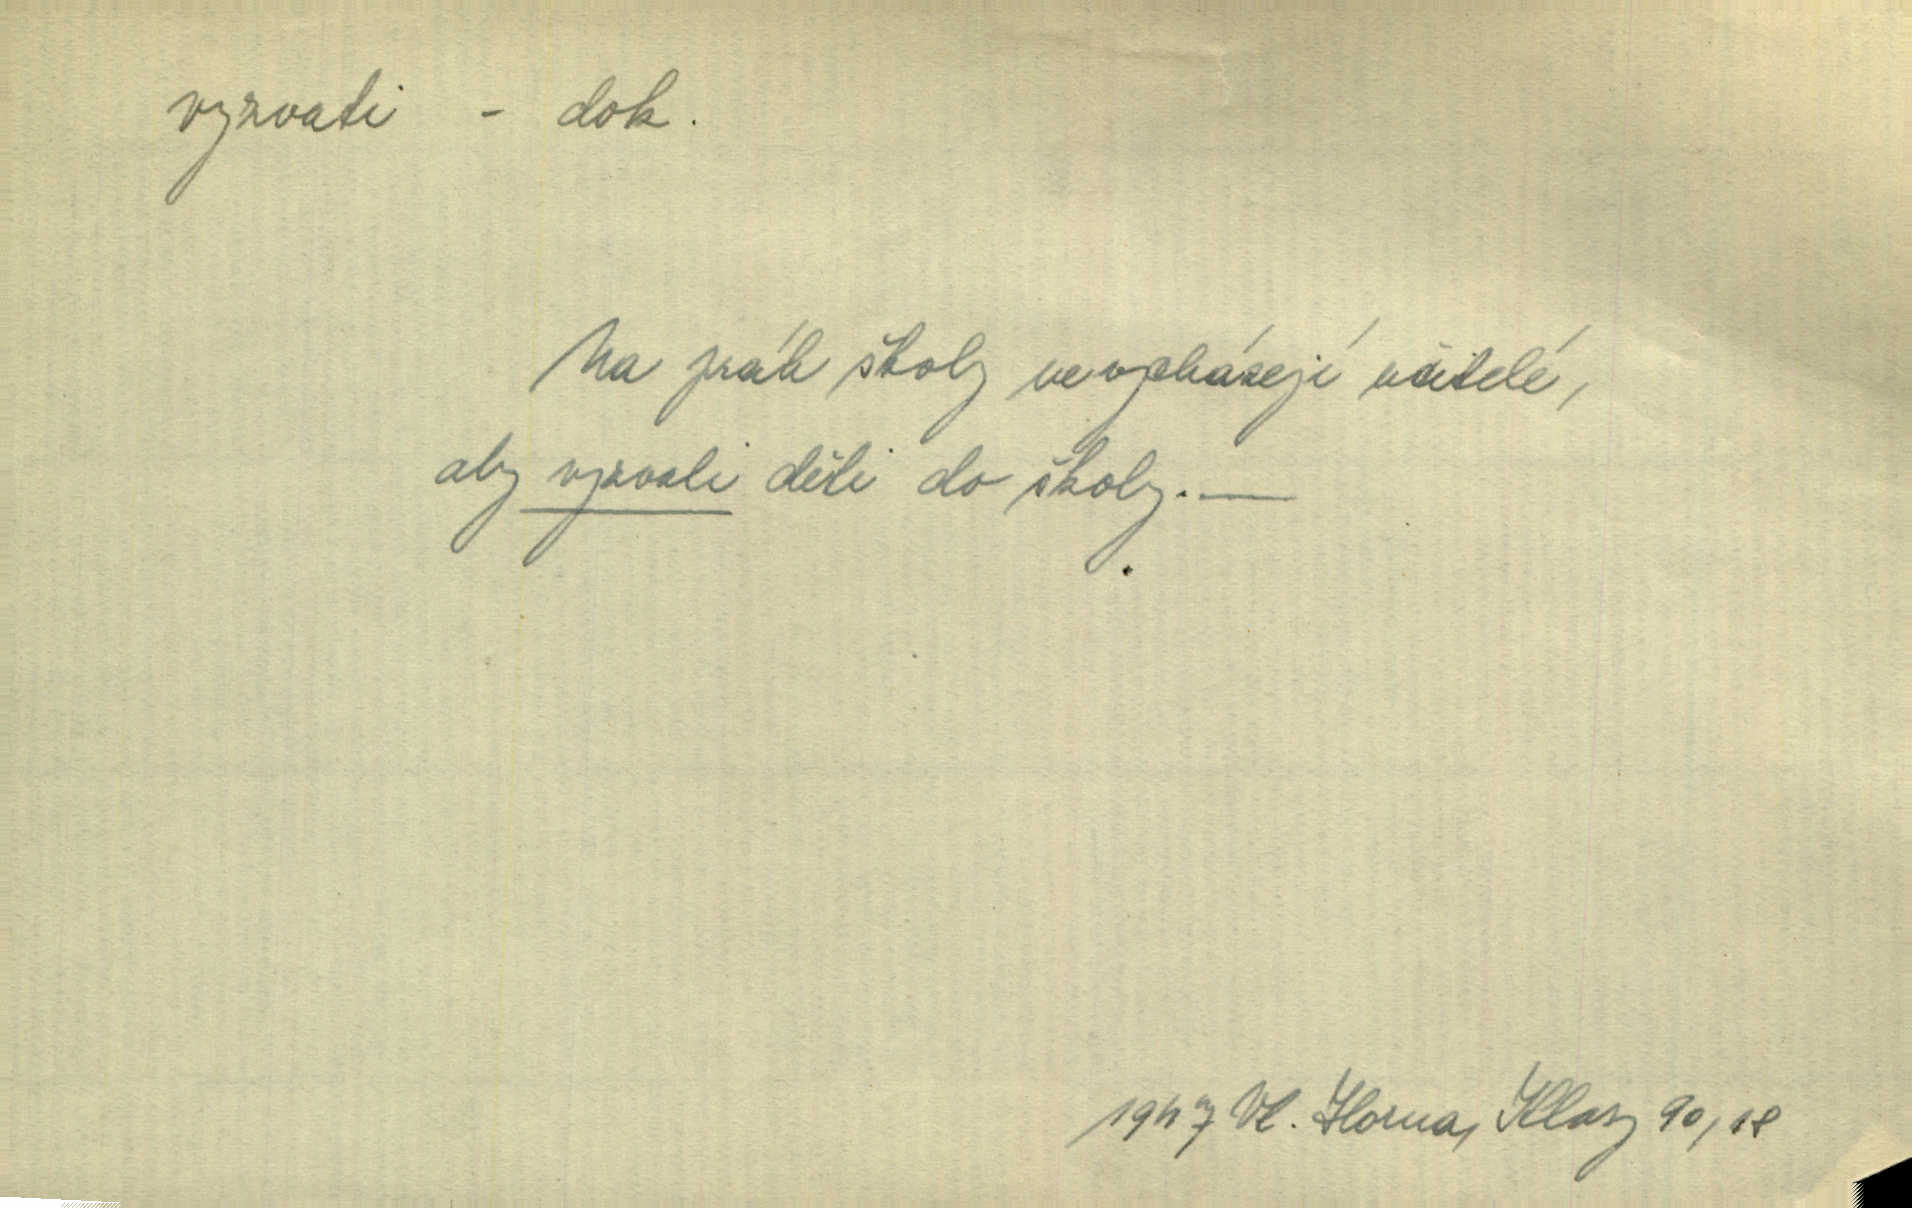 vyzvati - dok.
Na práh školy nevycházejí učitelé,
aby vyzvali děti do školy. —
1947 Vl. Horna, Klasy 90, 18